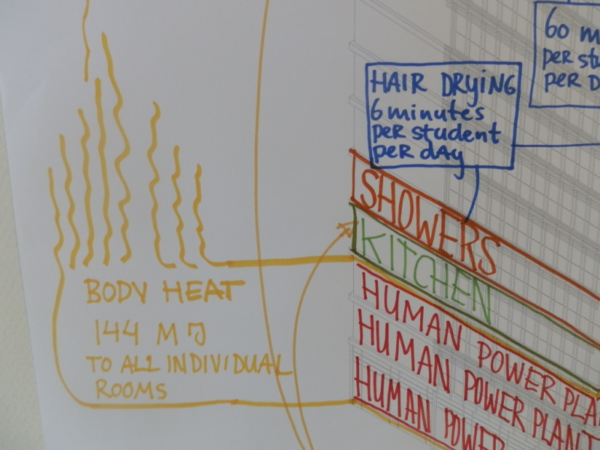 60
per
per
HAIR DRYING
6 minutes
per student
per day
SHOWERS
KITCHEN
HUMAN POWER
HUMAN POWER PLANT
HUMAN POWER
BODY HEAT
144 MJ
TO ALL INDIVIDUAL
ROOMS